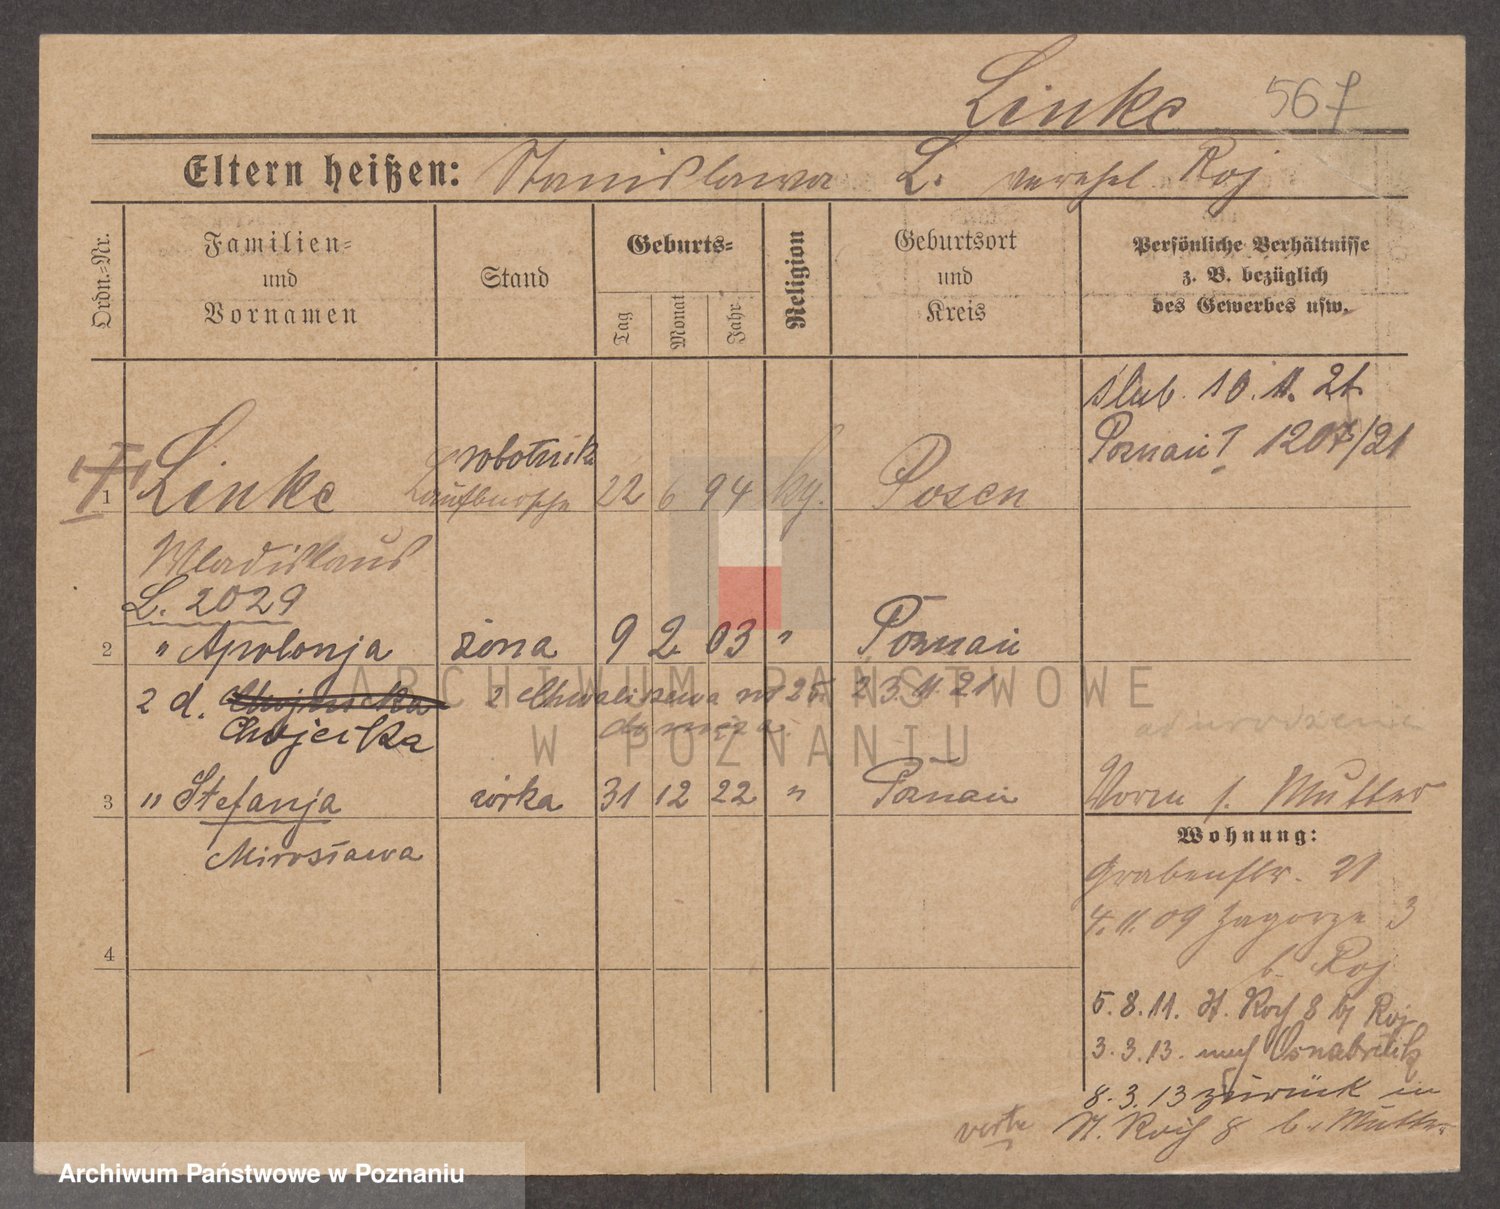 Linke 567
Eltern heißen: Stanislawa L. verehel. Roj
Ordn.-Nr.
Familien-
und
Vornamen
Stand
Geburts-
Tag
Monat
Jahr
Religion
Geburtsort
und
Kreis
Persönliche Verhältnisse
z. B. bezüglich
des Gewerbes usw.
ślub. 10.11.21.
Poznań 1207/21
robotnik
1 Linke Laufbursche 22 6 94 kg. Posen
Wladislaus
L. 2029
2 " Apolonja żona 9 2 03 " Poznań
2 d. Chojecka 2 Chwaliszewa nr 25. 23.11.21
Chojecka
3 " Stefanja córka 31 12 22 " Poznań
Mirosława
4
od urodzenia
Vorm s. Mutter
Wohnung:
Grabenstr. 21
4.11.09 Zagorze 3
b. Roj
5.8.11. St. Roch 8 b/ Roj
3.3.13. nach Osnabrück
8.3.13 zurück in
St. Roch 8 b. Mutter
verte
ARCHIWUM PAŃSTWOWE
W POZNANIU
Archiwum Państwowe w Poznaniu